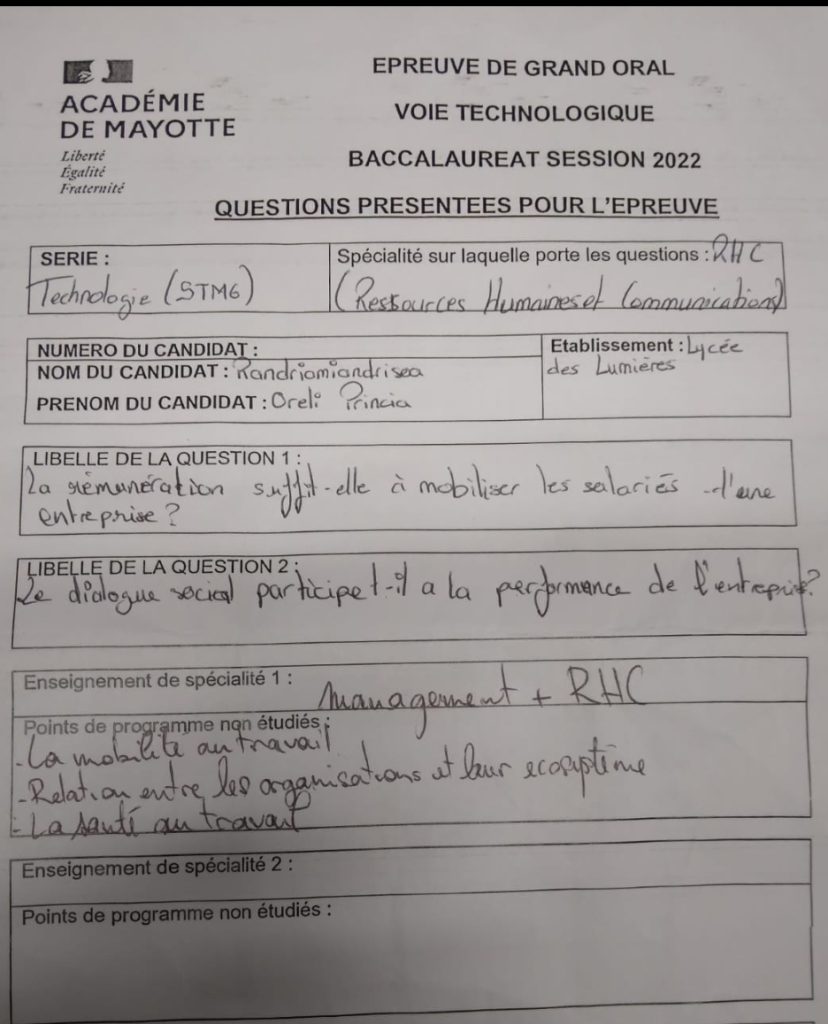 ACADÉMIE
DE MAYOTTE
Liberté
Égalité
Fraternité
EPREUVE DE GRAND ORAL
VOIE TECHNOLOGIQUE
BACCALAUREAT SESSION 2022
QUESTIONS PRESENTEES POUR L'EPREUVE
SERIE :
Technologie (STMG)
Spécialité sur laquelle porte les questions : RHC
(Ressources Humaines et Communication)
NUMERO DU CANDIDAT :
NOM DU CANDIDAT : Randriamiandrisea
PRENOM DU CANDIDAT : Oreli Princia
Etablissement : Lycée
des Lumières
LIBELLE DE LA QUESTION 1 :
La rémunération suffit-elle à mobiliser les salariés d'une
entreprise ?
LIBELLE DE LA QUESTION 2 :
Le dialogue social participe t-il a la performance de l'entreprise ?
Enseignement de spécialité 1 :
Management + RHC
Points de programme non étudiés :
- La mobilité au travail
- Relation entre les organisations et leur ecosyptème
- La santé au travail
Enseignement de spécialité 2 :
Points de programme non étudiés :